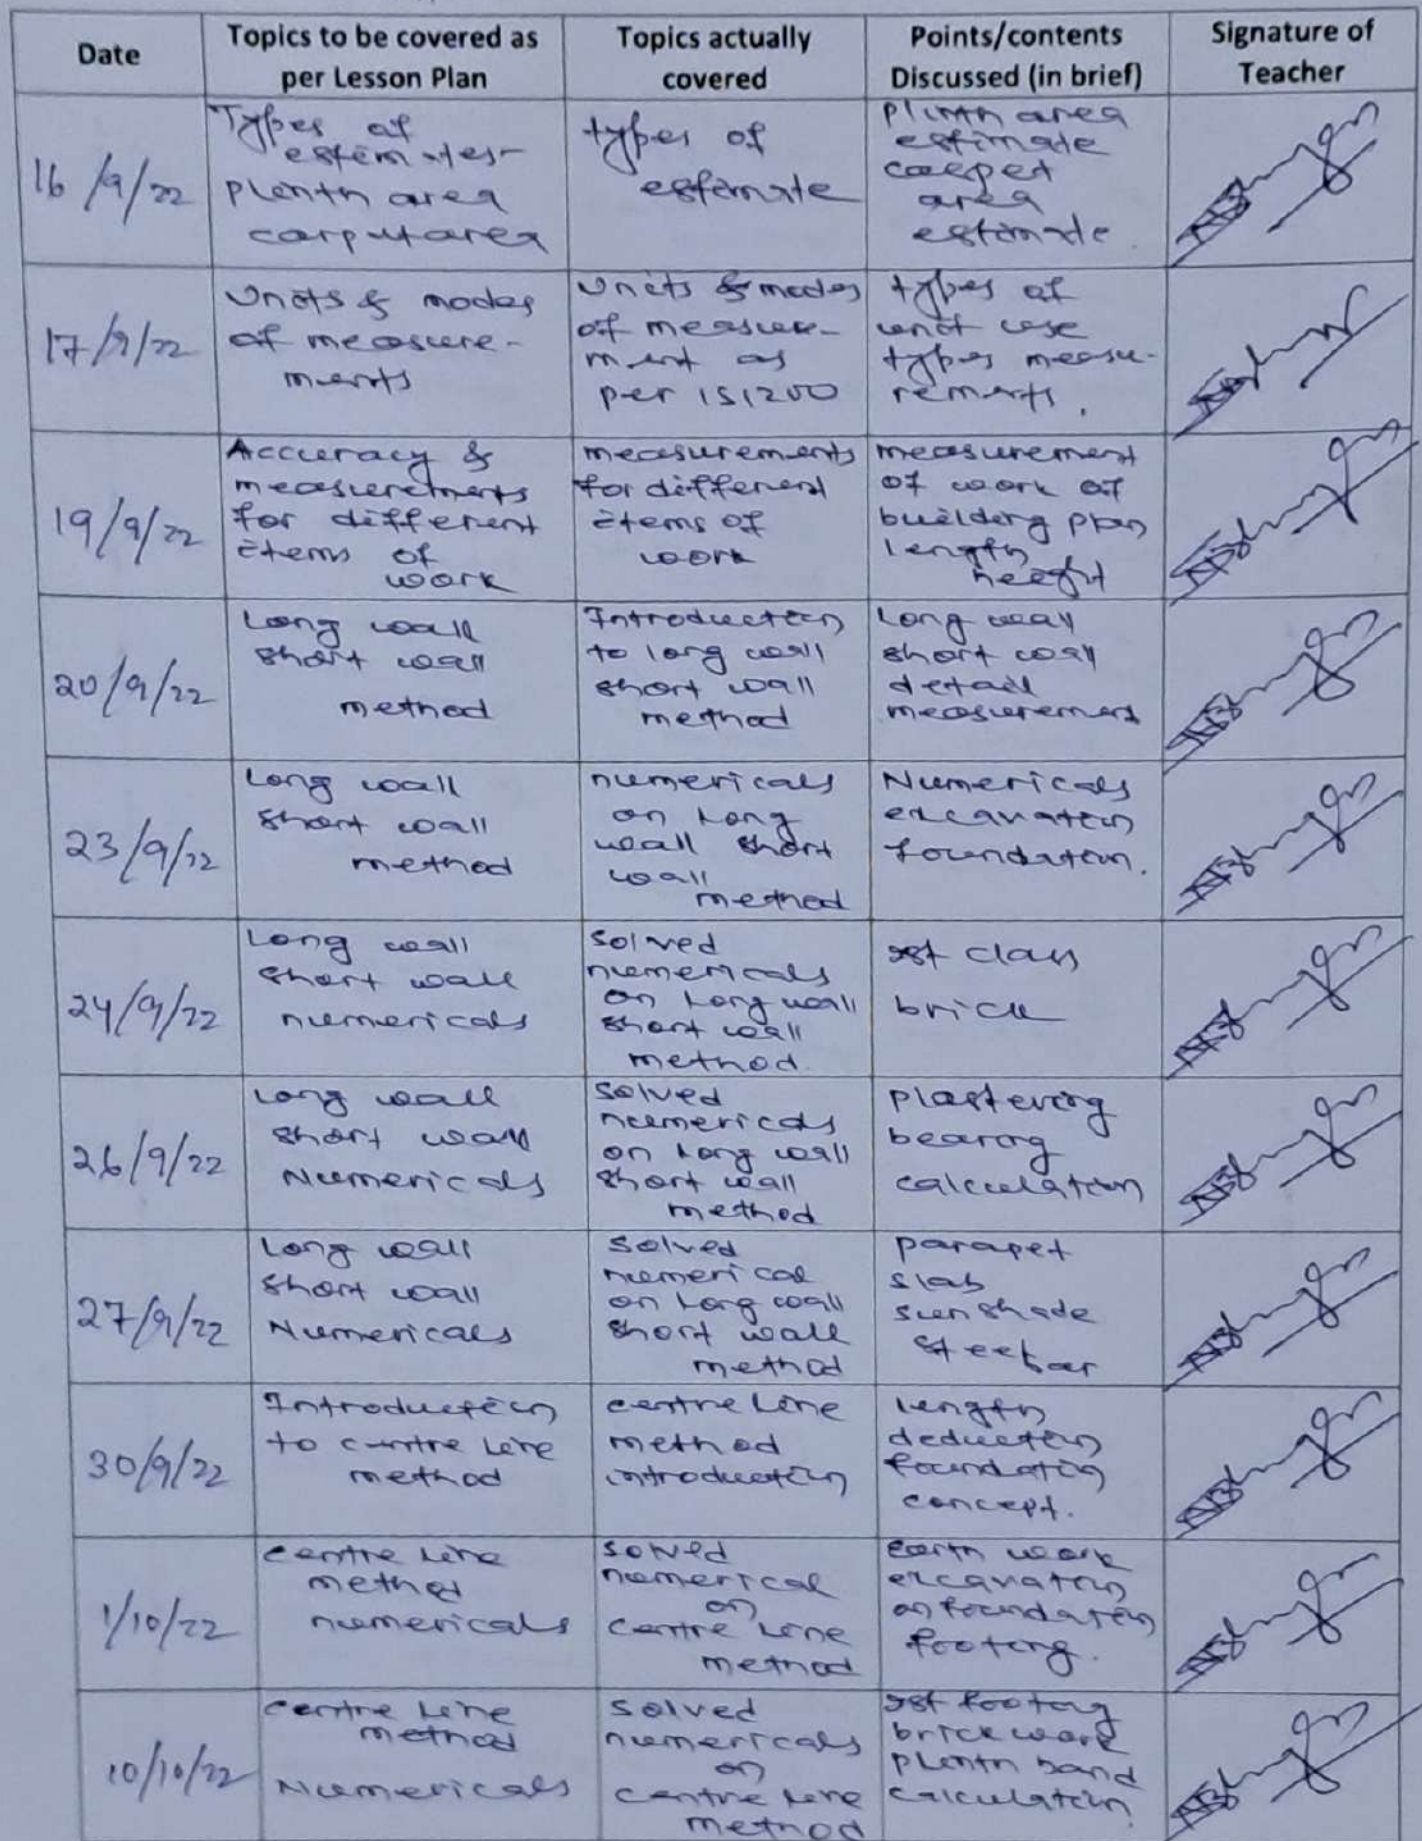 Date
Topics to be covered as
per Lesson Plan
Topics actually
covered
Points/contents
Discussed (in brief)
Signature of
Teacher
16/9/22
Types of
estimates-
plinth area
carpet area
types of
estimate
plinth area
estimate
carpet
area
estimate
17/9/22
Units & modes
of measure-
ments
Units & modes
of measure-
ment as
per IS1200
types of
unit use
types measu-
rements.
19/9/22
Accuracy &
measurements
for different
items of
work
measurements
for different
items of
work
measurement
of work of
building plan
length
height
20/9/22
Long wall
short wall
method
Introduction
to long wall
short wall
method
Long wall
short wall
detail
measurement
23/9/22
Long wall
short wall
method
numericals
on Long
wall short
wall
method
Numericals
excavation
foundation.
24/9/22
Long wall
short wall
numericals
solved
numericals
on Long wall
short wall
method.
Ist class
brick
26/9/22
Long wall
short wall
Numericals
solved
numericals
on Long wall
short wall
method
plastering
bearing
calculation
27/9/22
Long wall
short wall
Numericals
solved
numerical
on Long wall
short wall
method
parapet
slab
sunshade
steelbar
30/9/22
Introduction
to centre Line
method
centre Line
method
introduction
length
deduction
foundation
concept.
1/10/22
centre Line
method
numericals
solved
numerical
on
centre Line
method
earth work
excavation
on foundation
footing.
10/10/22
centre Line
method
Numericals
solved
numericals
on
centre Line
method
Ist footing
brickwork
plinth band
calculation